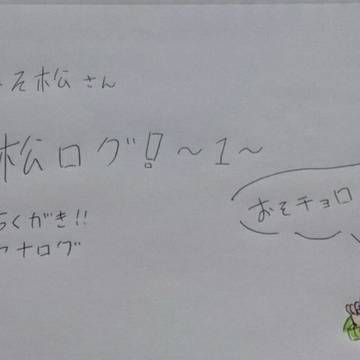 そ松さん
松ログ!~1~
らくがき!!
アナログ
おそチョロ